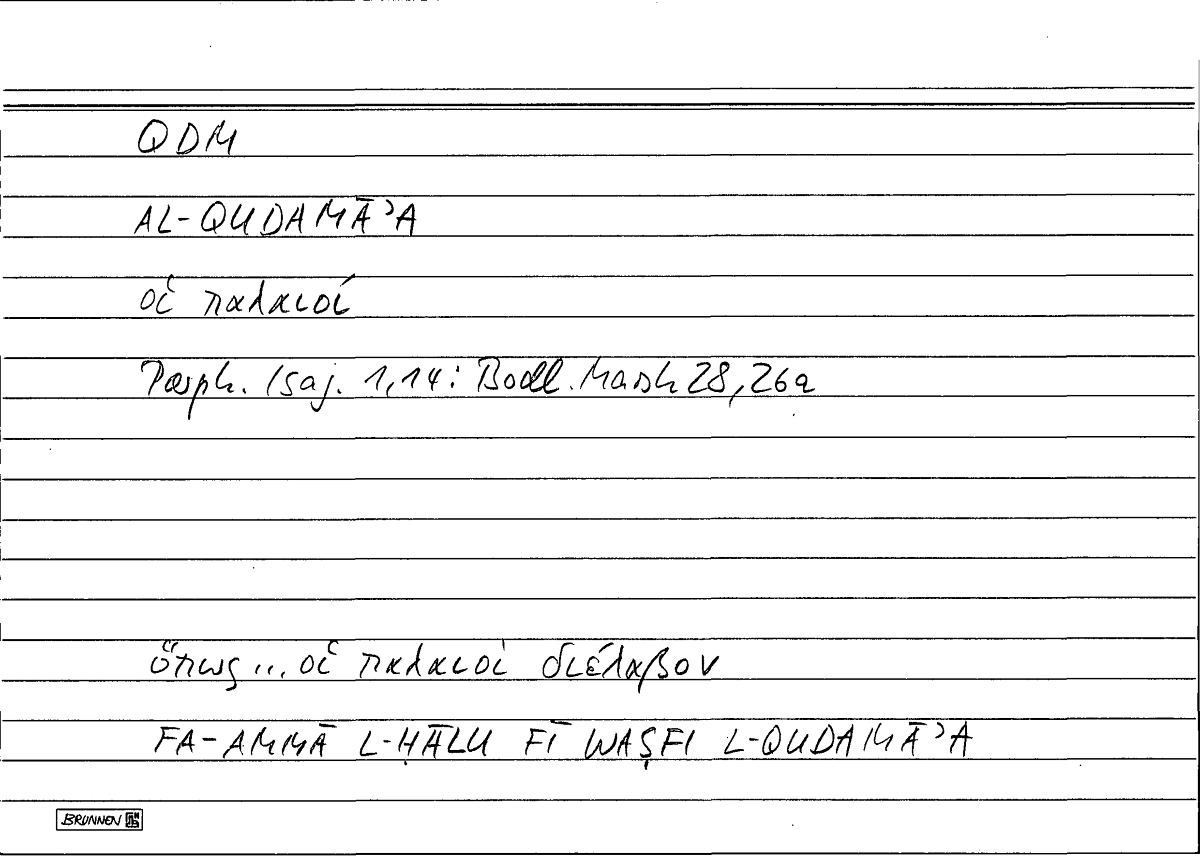 QDM
AL-QUDAMĀʾA
οἱ παλαιοί
Porph. Isag. 1,14: Bodl. Marsh 28,26a
ὅπως ... οἱ παλαιοὶ διέλαβον
FA-AMMĀ L-ḤĀLU FĪ WAṢFI L-QUDAMĀʾA
BRUNNEN